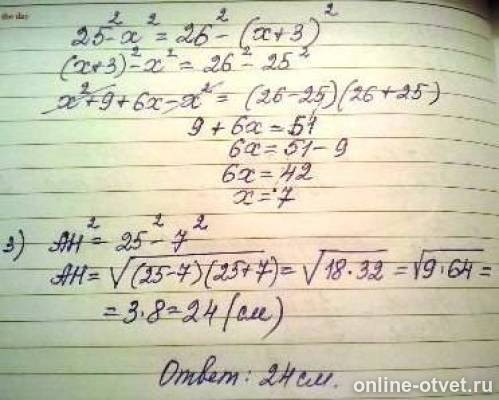 the day
25² - x² = 26² - (x+3)²
(x+3)² - x² = 26² - 25²
x² + 9 + 6x - x² = (26-25)(26+25)
9 + 6x = 51
6x = 51 - 9
6x = 42
x = 7
3) AH² = 25² - 7²
AH = √(25-7)(25+7) = √18·32 = √9·64 =
= 3·8 = 24 (см)
Ответ: 24 см.
online-otvet.ru